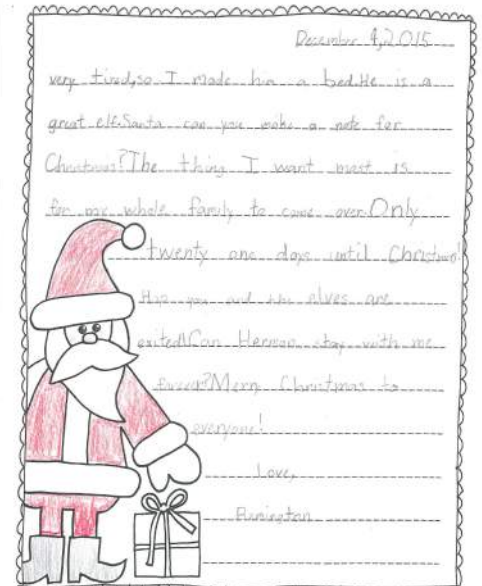 December 4,2015
very tired,so I made him a bed.He is a
great elf.Santa can you make a note for
Christmas?The thing I want most is
for my whole family to come over.Only
twenty one days until Christmas!
Hope you and the elves are
exited!Can Herman stay with me
Merry Christmas to
everyone!
Love,
Remington